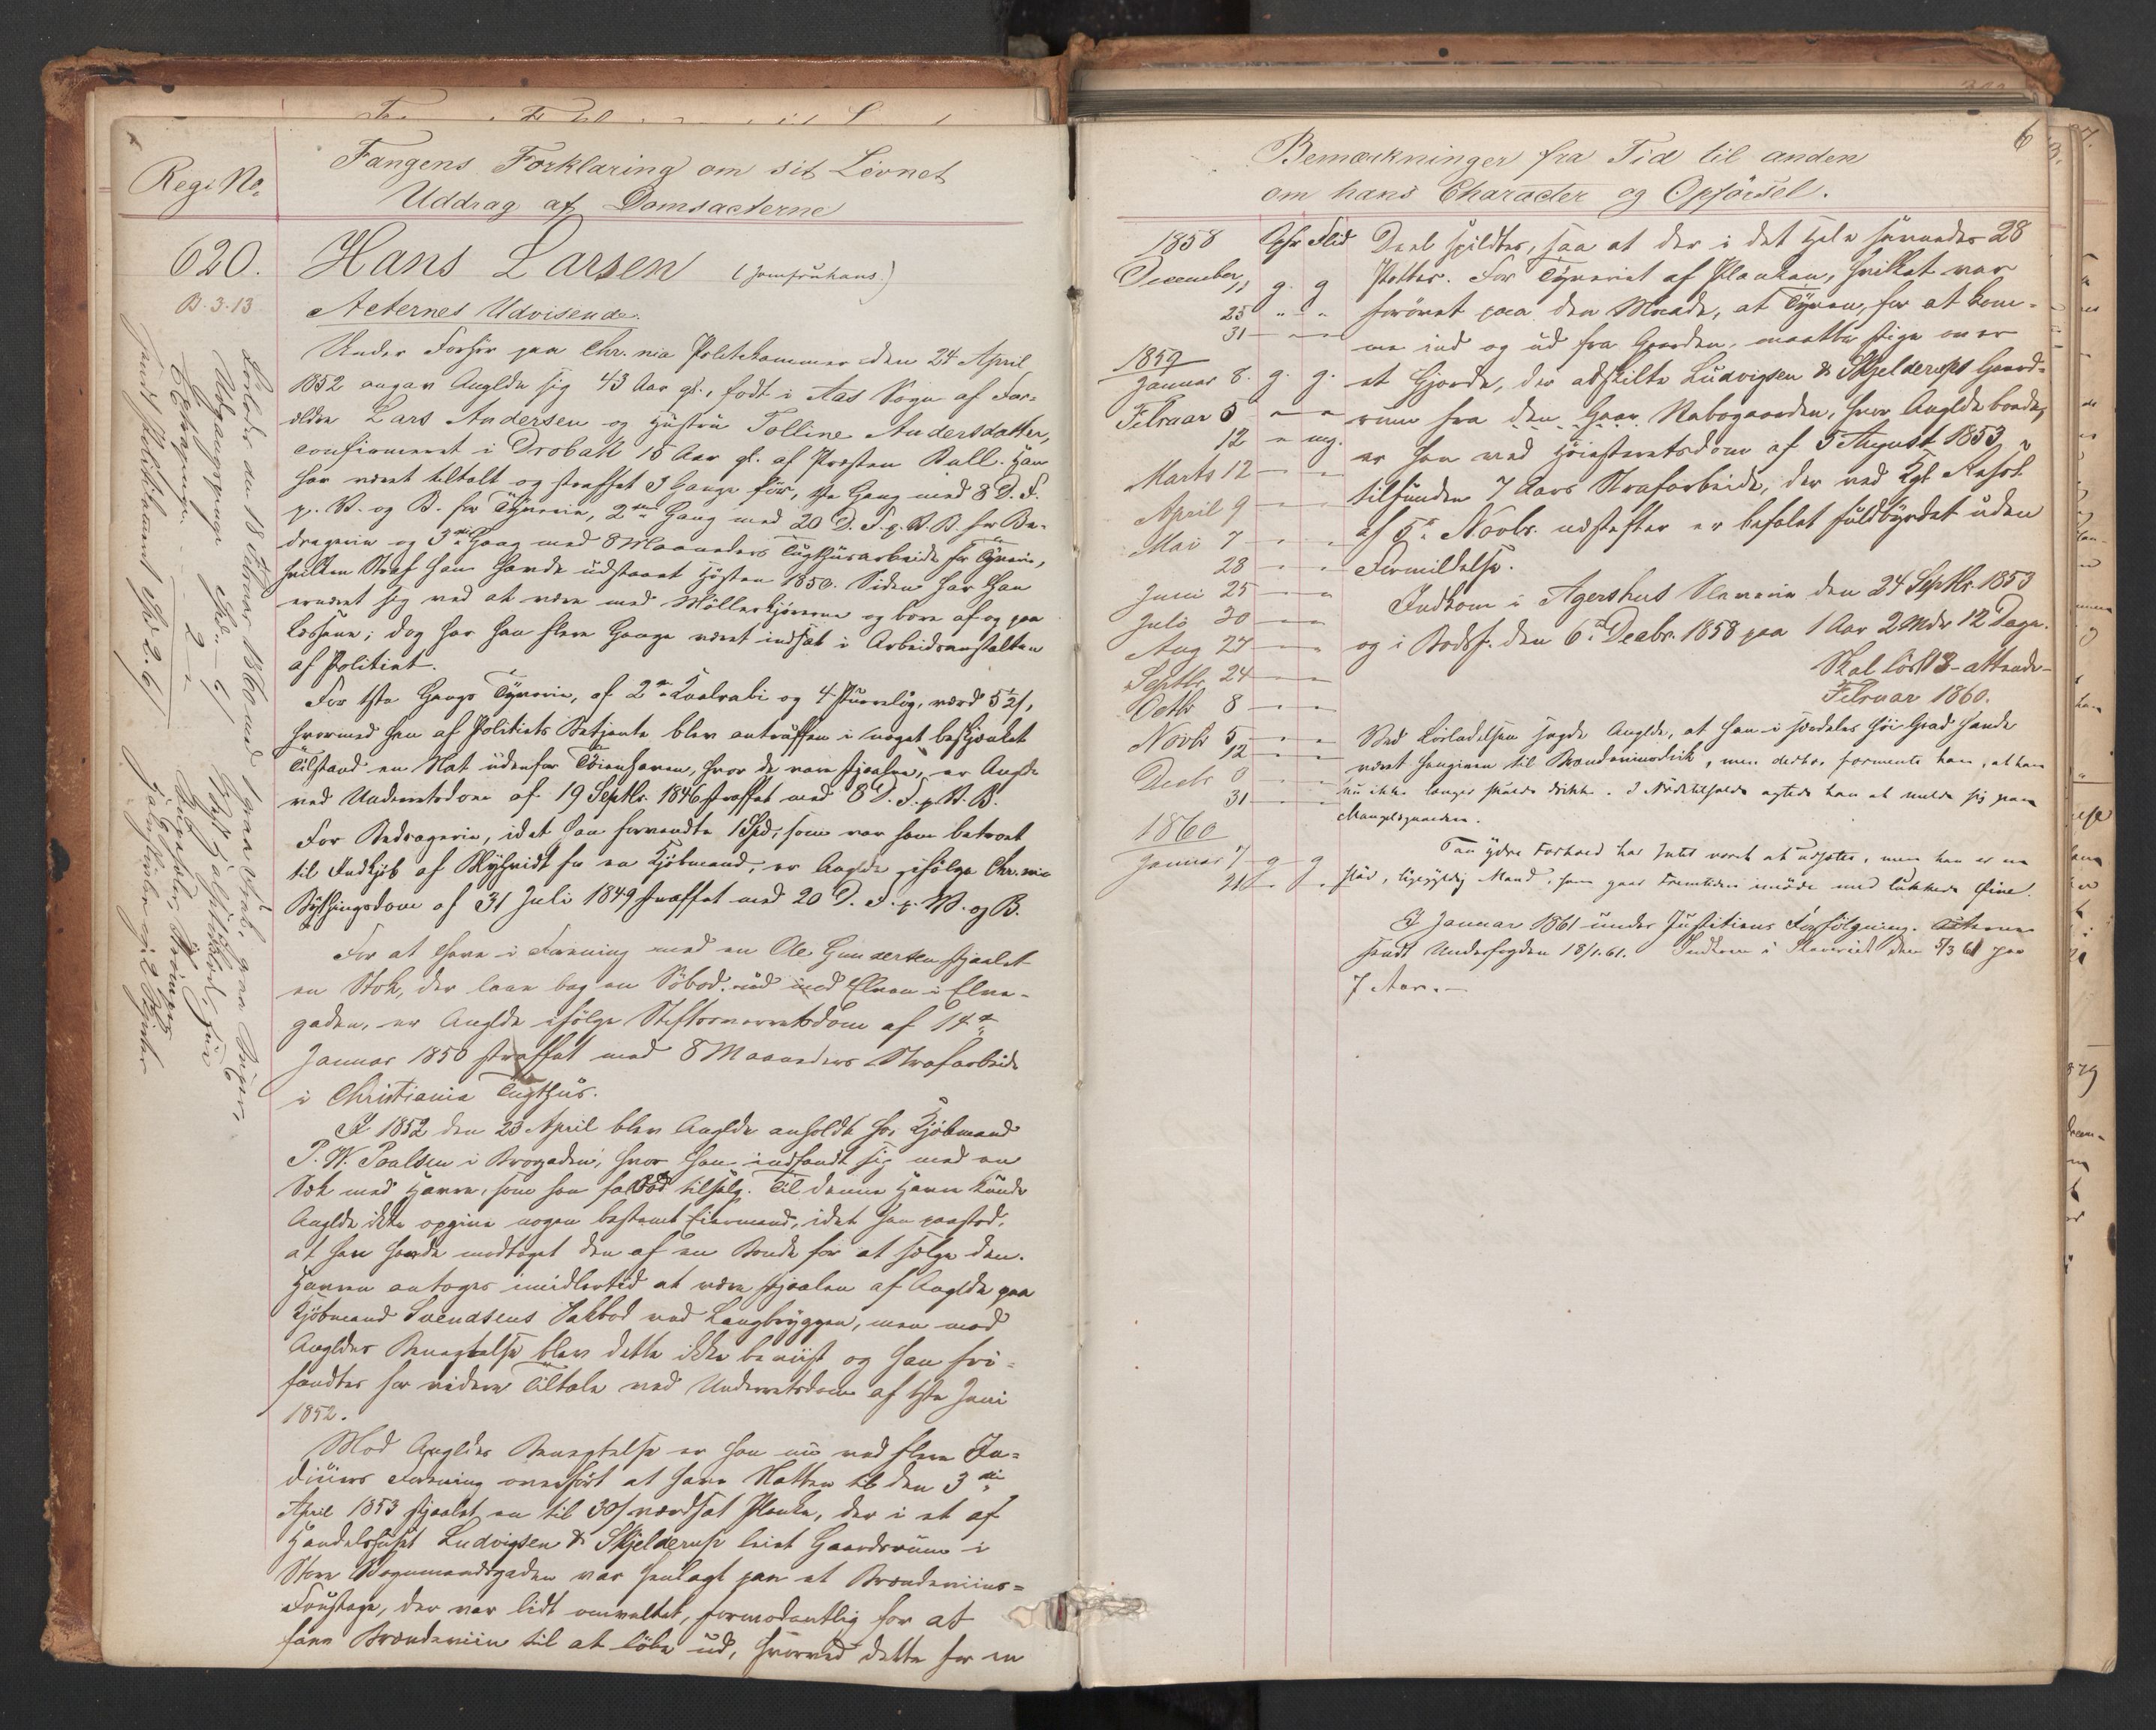 Regs No.
Fangens Forklaring om sit Levnet
Uddrag af Domsacterne
620.
B. 3. 13
Hans Larsen (Jomfruhans)
Acternes Udvisende.
Under Forhør paa Chr.nia Politikammer den 24 April
1852 angav Anglde sig 43 Aar gl., født i Aas Sogn af For-
ældre Lars Andersen og Hustru Tolline Andersdatter,
confirmeret i Drøbak 15 Aar gl. af Præsten Bull. Han
har været tiltalt og straffet 3 Gange før, 1ste Gang med 8 D. F.
p. V. og B. for Tyverie, 2den Gang med 20 D. F. p. V. B. for Be-
dragerie og 3die Gang med 8 Maaneders Tugthusarbeide for Tyverie,
hvilken Straf han havde udstaaet Høsten 1850. Siden har han
ernæret sig ved at være med Møllerkjørerne og bære af og paa
Læssene; dog har han flere Gange været indsat i Arbeidsanstalten
af Politiet.
For 1ste Gangs Tyverie, af 2 Kaalrabi og 4 værd 5½ s,
hvormed han af Politiets Betjente blev antruffen i noget beskjænket
Tilstand en Nat udenfor Tøienhaven, hvor de vare stjaalne, er Anglde
ved Underretsdom af 19 Septbr. 1846 straffet med 8 D. F. p. V. B.
For Bedragerie, idet han forvendte 1 Spd., som var ham betroet
til Indkjøb af for en Kjøbmand, er Anglde ifølge Chr.nia
Bythingsdom af 31 Juli 1849 straffet med 20 D. F. p. V. og B.
For at have i Forening med en Ole Gundersen stjaalet
en Stok, der laae bag en Søbod ud mod Elven i Elve-
gaden, er Anglde ifølge Stiftsoverretsdom af 14de
Januar 1850 straffet med 8 Maaneders Strafarbeide
i Christiania Tugthus.
I 1852 den 23 April blev Anglde anholdt hos Kjøbmand
P. W. Poulsen i Brogaden, hvor han indfandt sig med en
Sæk med Havre, som han falbød tilsalg. Til denne Havre kunde
Anglde ikke opgive nogen bestemt Eiermand, idet han paastod,
at han havde modtaget den af en Bonde for at sælge den.
Havren antoges imidlertid at være stjaalen af Anglde paa
Kjøbmand Svendsens Pakbod ved Langbryggen, men mod
Angldes Benegtelse blev dette ikke beviist og han fri-
fandtes for videre Tiltale ved Underretsdom af 1ste Juni
1852.
Mod Angldes Benegtelse er han nu ved flere In-
diciers Forening overført at have Natten til den 3die
April 1853 stjaalet en til 30 s værdsat Planke, der i et af
Handelshuset Ludvigsen & Skjelderup leiet Gaardsrum i
Store Vognmandsgaden var henlagt paa et Brændeviins-
Foustage, der var lidt omveltet, formodentlig for at
faae Brændeviin til at løbe ud, hvorved dette for en
Løslades den 18 Februar 1860 med 1 graa Frak, graa Buxer,
Udgangspenge
6
Bemærkninger fra Tid til anden
om hans Character og Opførsel.
1858 Opf. Flid
December 11 g. g
25 " "
31 - -
1859
Januar 8. g. g.
Februar 5 - -
12 - mg.
Marts 12 - -
April 9 - -
Mai 7 - -
28 - -
Juni 25 - -
Juli 30 - -
Aug 27 - -
Septbr. 24 - -
Octbr 8 - -
Novbr 5 - -
12 - -
Decbr 3 - -
31 - -
1860
Januar 7 g g
21 - -
Deel spildtes, saa at der i det Hele savnedes 28
Potter. For Tyveriet af Planken, hvilket var
forøvet paa den Maade, at Tyven, for at kom-
me ind og ud fra Gaarden, maatte stige over
et Gjerde, der adskilte Ludvigsen & Skjelderups Gaards-
rum fra den Gaar Nabogaarden, hvor Anglde boede,
er han ved Høiesteretsdom af 5 August 1853
tilfunden 7 Aars Strafarbeide, der ved Kgl. Resol.
af 5te Novbr. næstefter er befalet fuldbyrdet uden
Formildelse.
Indkom i Agershus Slaverie den 24 Septbr. 1853
og i Bodsf. den 6te Decbr. 1858 paa 1 Aar 2 Mdr 12 Dage.
Skal løsl. 18 - attende -
Februar 1860.
Ved Løsladelsen sagde Anglde, at han i særdeles høi Grad havde
været hengiven til Brændeviinsdrik, men derhos formente han, at han
nu ikke længer skulde drikke. I Nødstilfælde agtede han at melde sig paa
Mangelsgaarden.
Paa ydre Forhold har Intet været at udsætte, men han er en
sløv, ligegyldig Mand, som gaar Fremtiden imøde med lukkede Øine.
I Januar 1861 under Justitiens Forfølgning. Acterne
sendt Underfogden 18/1. 61. Indkom i Slaveriet den 5/3 61 paa
7 Aar. -